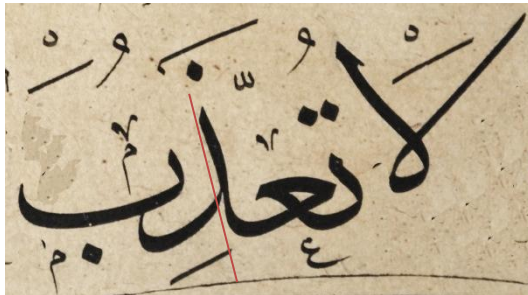 لَا تُعَذِّبْ